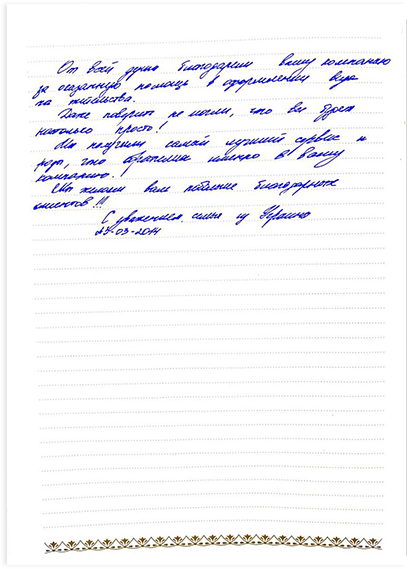 От всей души благодарим вашу компанию
за оказанную помощь в оформлении вида
на жительство.
Даже поверить не могли, что все будет
настолько просто!
Мы получили самый лучший сервис и
рады, что обратились именно в Вашу
компанию!
Мы желаем вам побольше благодарных
клиентов!!!
С уважением, семья из Украины
-03-2014